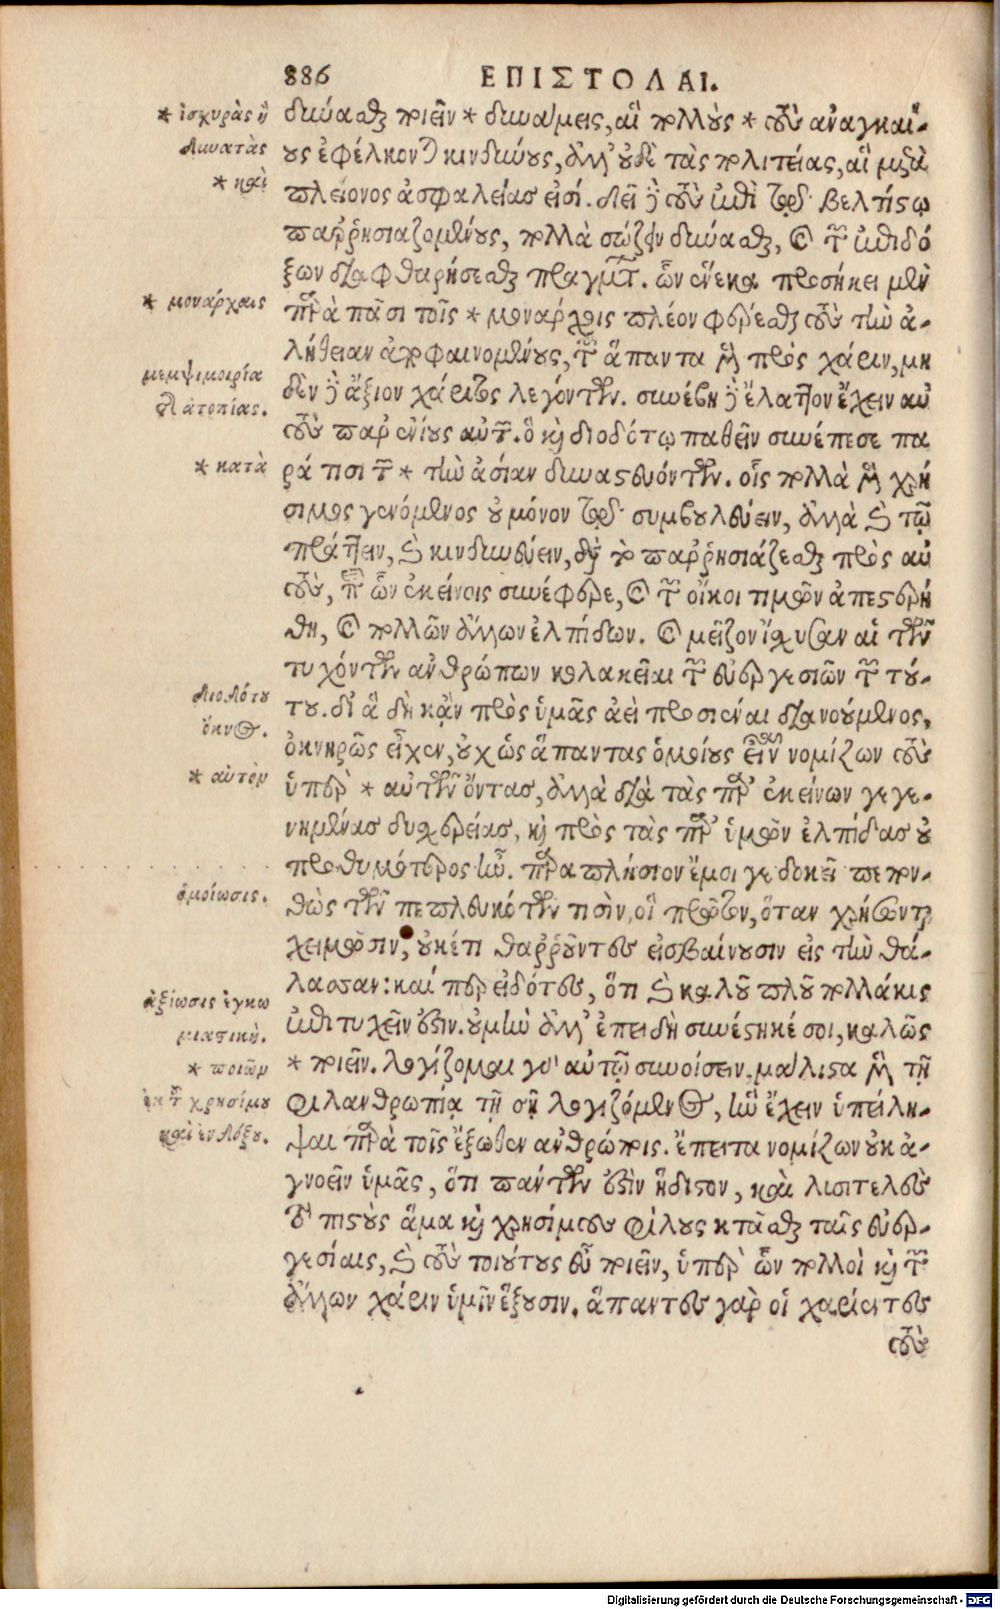 886 ΕΠΙΣΤΟΛΑΙ.
* ἰσχυρὰς ἢ
δυνατὰς
* καὶ
* μονάρχαις
μεμψιμοιρία
δι' ἀτοπίας.
* κατὰ
Διοδότου
ὄκνος.
* αὐτὸν
ὁμοίωσις.
ἀξίωσις ἐγκω
μιαστικὴ.
* ποιῶν
ἐκ τοῦ χρησίμου
καὶ ἐνδόξου.
δύνασθαι ποιεῖν * δυνάμεις, αἳ πολλοὺς * τοὺς ἀναγκαί-
ους ἐφέλκονται κινδύνους, ἀλλ' οὐδὲ τὰς πολιτείας, αἳ μετὰ
πλείονος ἀσφαλείας εἰσί. δεῖ γὰρ τοὺς ἐπὶ τῷ βελτίστῳ
παῤῥησιαζομένους, πολλὰ σώζειν δύνασθαι, καὶ τῶν ἐπιδό
ξων διαφθαρήσεσθαι πραγμάτων. ὧν ἕνεκα προσήκει μὲν
παρὰ πᾶσι τοῖς * μονάρχοις πλέον φέρεσθαι τοὺς τὴν ἀ-
λήθειαν ἀποφαινομένους, τῶν ἅπαντα μὲν πρὸς χάριν, μη
δὲν δὲ ἄξιον χάριτος λεγόντων. συνέβη δὲ ἔλαττον ἔχειν αὐ
τοὺς παρ' ἐνίοις αὐτῶν. ὃ καὶ διοδότῳ παθεῖν συνέπεσε πα
ρά τισι τῶν * τὴν ἀσίαν δυναστευόντων. οἷς πολλὰ μὲν χρή
σιμος γενόμενος οὐ μόνον τῷ συμβουλεύειν, ἀλλὰ καὶ τῷ
πράττειν, καὶ κινδυνεύειν, διὰ τὸ παῤῥησιάζεσθαι πρὸς αὐ
τοὺς, περὶ ὧν ἐκείνοις συνέφερε, καὶ τῶν οἴκοι τιμῶν ἀπεστερή
θη, καὶ πολλῶν ἄλλων ἐλπίδων. καὶ μεῖζον ἴσχυσαν αἱ τῶν
τυχόντων ἀνθρώπων κολακεῖαι τῶν εὐεργεσιῶν τῶν τού-
του. δι' ἃ δὴ κἂν πρὸς ὑμᾶς ἀεὶ προσιέναι διανοούμενος,
ὀκνηρῶς εἶχεν, οὐχ ὡς ἅπαντας ὁμοίους εἶναι νομίζων τοὺς
ὑπὲρ * αὐτῶν ὄντας, ἀλλὰ διὰ τὰς παρ' ἐκείνων γεγε-
νημένας δυσχερείας, καὶ πρὸς τὰς παρ' ὑμῶν ἐλπίδας οὐ
προθυμότερος ἦν. παραπλήσιον ἔμοιγε δοκεῖ πεπον-
θὼς τῶν πεπλευκότων τισὶν, οἳ πρῶτον, ὅταν χρήσωνται
χειμῶσιν, οὐκέτι θαῤῥοῦντες εἰσβαίνουσιν εἰς τὴν θά-
λασσαν: καί περ εἰδότες, ὅτι καὶ καλοῦ πλοῦ πολλάκις
ἐπιτυχεῖν ἔστιν. οὐ μὴν ἀλλ' ἐπειδὴ συνέστηκέ σοι, καλῶς
* ποιεῖν. λογίζομαι γὸ αὐτῷ συνοίσειν, μάλιστα μὲν τῇ
φιλανθρωπίᾳ τῇ σῇ λογιζόμενος, ἣν ἔχειν ὑπείλη-
ψαι παρὰ τοῖς ἔξωθεν ἀνθρώποις. ἔπειτα νομίζων οὐκ ἀ-
γνοεῖν ὑμᾶς, ὅτι πάντων ἐστὶν ἥδιστον, καὶ λυσιτελὲς
τὸ πιστοὺς ἅμα καὶ χρησίμους φίλους κτᾶσθαι ταῖς εὐερ-
γεσίαις, καὶ τοὺς τοιούτους εὖ ποιεῖν, ὑπὲρ ὧν πολλοὶ καὶ τῶν
ἄλλων χάριν ὑμῖν ἕξουσιν. ἅπαντες γὰρ οἱ χαρίεντες
τοὺς
Digitalisierung gefördert durch die Deutsche Forschungsgemeinschaft - DFG